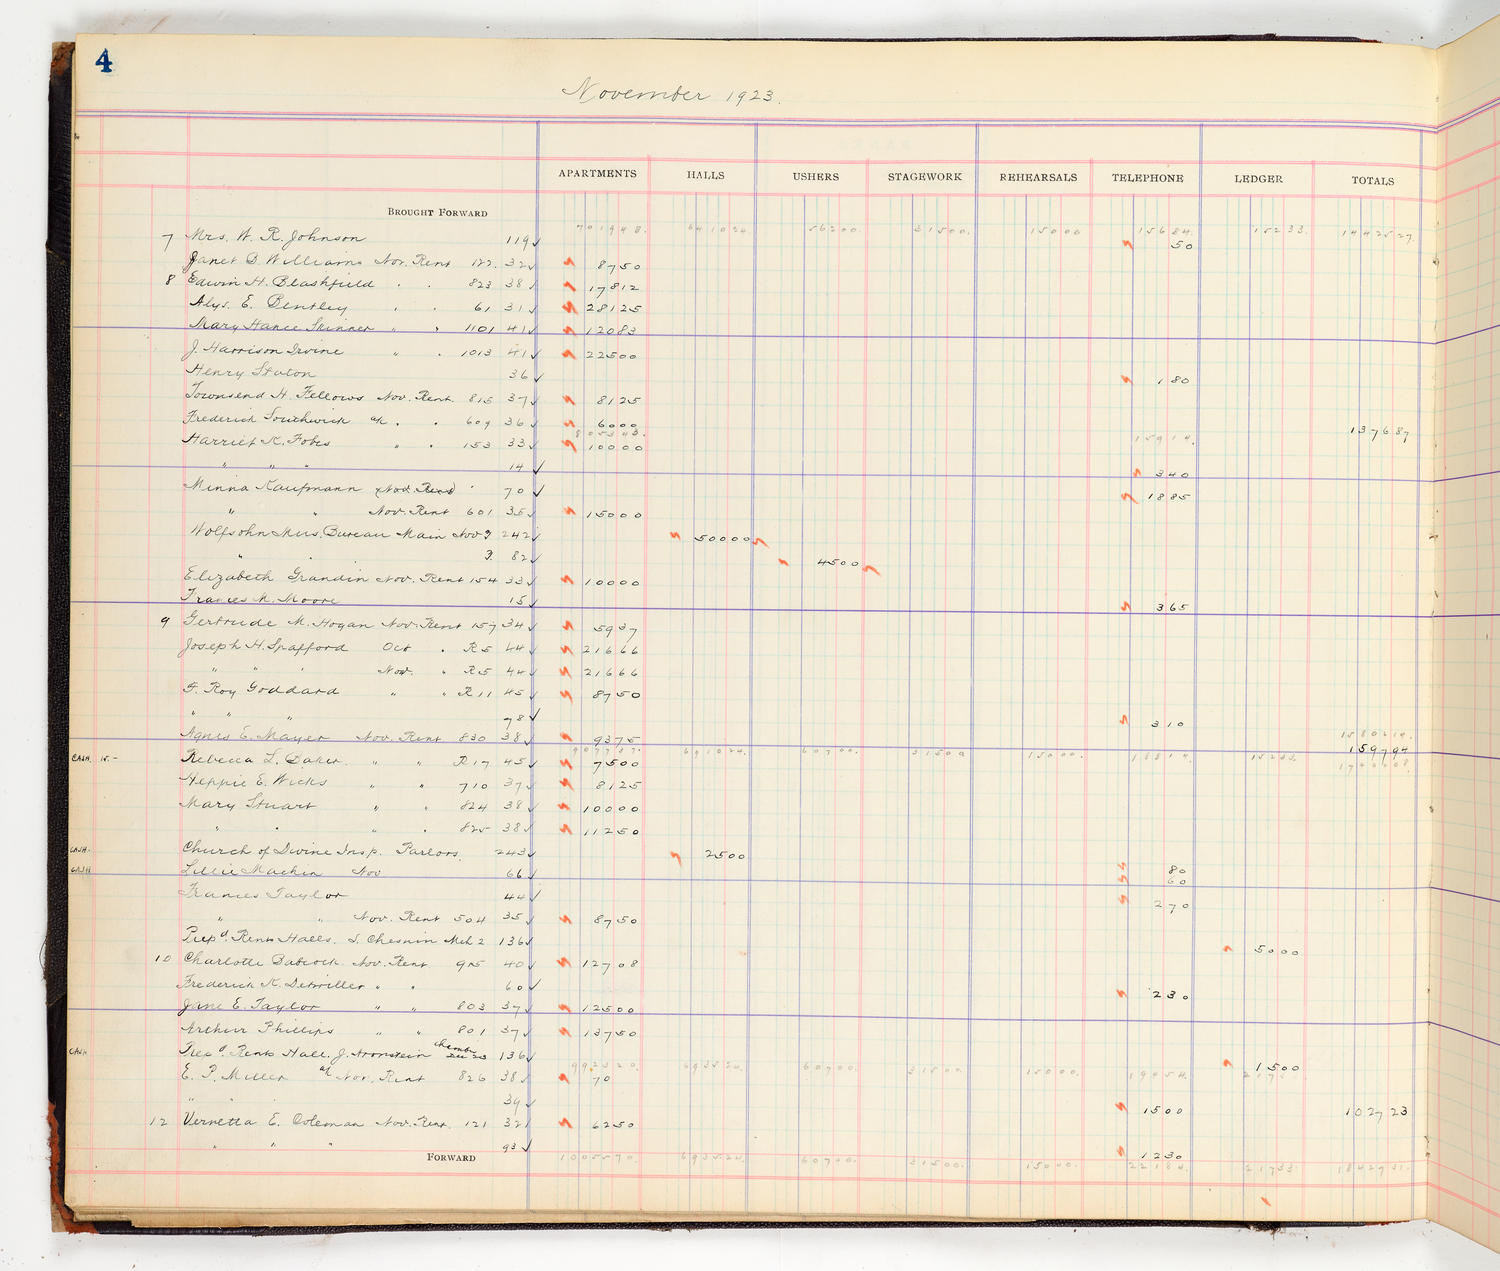 4
November 1923.
APARTMENTS HALLS USHERS STAGEWORK REHEARSALS TELEPHONE LEDGER TOTALS
BROUGHT FORWARD 701948. 641024. 56200. 31500. 15000 15684. 15233. 1442527.
7 Mrs. W. R. Johnson 119 ✓ 50
Janet B. Williams Nov. Rent 122. 32 ✓ 8750
8 Edwin H. Blashfield " " 823 38 ✓ 17812
Alys. E. Bentley " " 61 31 ✓ 28125
Mary Hance Skinner " " 1101 41 ✓ 12083
J. Harrison Irvine " " 1013 41 ✓ 22500
Henry 36 ✓ 180
Townsend H. Fellows Nov. Rent 815 37 ✓ 8125
Frederick Southwick a/c " " 609 36 ✓ 6000 137687
805343. 15914.
Harriet K. Fobes " " 153 33 ✓ 10000
" " " 14 ✓ 340
Minna Kaufmann (Nov. Rent) 70 ✓ 1885
" " Nov. Rent 601 35 ✓ 15000
Wolfsohn Mus. Bureau Main Nov 242 ✓ 50000
" " 82 ✓ 4500
Elizabeth Grandin Nov. Rent 154 33 ✓ 10000
Frances M. Moore 15 ✓ 365
9 Gertrude M. Hogan Nov. Rent 157 34 ✓ 5937
Joseph H. Spafford Oct " R5 44 ✓ 21666
" " " Nov. " R5 44 ✓ 21666
F. Roy Goddard " " R11 45 ✓ 8750
" " " 78 ✓ 310
Agnes E. Mayer Nov. Rent 830 38 ✓ 9375 1580214.
907737. 691024. 60700. 31500 15000. 18814. 15233. 159794
CASH. 15.- Rebecca L. Baker. " " R17 45 ✓ 7500 1740008
Heppie E. Wicks " " 710 37 ✓ 8125
Mary Stuart " " 824 38 ✓ 10000
" " " " 825 38 ✓ 11250
CASH. Church of Divine Insp. Parlors. 243 ✓ 2500 80
CASH Lillie Machin Nov 66 ✓ 60
Frances Taylor 44 ✓ 270
" " Nov. Rent 504 35 ✓ 8750
Prepd. Rents Halls. Chesnin Mch 2 136 ✓ 5000
10 Charlotte Babcock. Nov. Rent. 915 40 ✓ 12708
Frederick K. Detwiller " " 60 ✓ 230
Jane E. Taylor " " 803 37 ✓ 12500
Arthur Phillips " " 801 37 ✓ 13750
CASH Prepd. Rents Hall. J. Aronstein Chamber Dec 23 136 ✓ 1500
992320. 693524. 60700. 31500. 15000. 19454. 21733.
E. P. Miller a/c Nov. Rent 826 38 ✓ 70
" " " 39 ✓ 1500 102723
12 Vernetta E. Coleman Nov. Rent. 121 32 6250
" " " 93 ✓ 1230
FORWARD 1005570. 693524. 60700. 31500. 15000. 22184. 21733. 1842731.